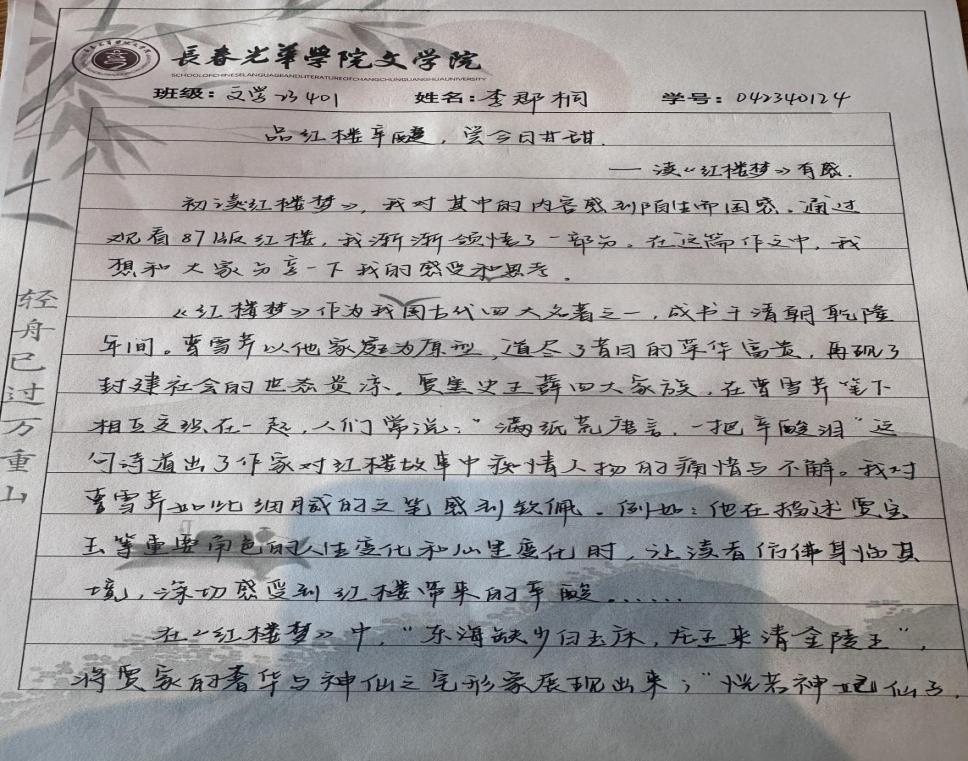 長春光華學院文学院
SCHOOLOFCHINESELANGUAGEANDLITERATUREOFCHANGCHUNGUANGHUAUNIVERSITY
班级：文学23401 姓名：李郡桐 学号：042340124
品红楼辛酸，尝今日甘甜.
——读《红楼梦》有感.
初读红楼梦》，我对其中的内容感到陌生而困惑。通过
观看87版红楼，我渐渐领悟了一部分。在这篇作文中，我
想和大家分享一下我的感受和思考。
《红楼梦》作为我国古代四大名著之一，成书于清朝乾隆
年间。曹雪芹以他家庭为原型，道尽了昔日的荣华富贵，再现了
封建社会的世态炎凉。贾史王薛四大家族，在曹雪芹笔下
相互交织在一起，人们常说："满纸荒唐言，一把辛酸泪"这
句诗道出了作家对红楼故事中痴情人物的痛惜与不解。我对
曹雪芹如此细腻的文笔感到钦佩。例如：他在描述贾宝
玉等重要角色的人生变化和心里变化时，让读者仿佛身临其
境，深切感受到红楼带来的辛酸......
在《红楼梦》中，"东海缺少白玉床，龙王来请金陵王"，
将贾家的奢华与神仙之宅形象展现出来；"恍若神妃仙子，
轻舟已过万重山